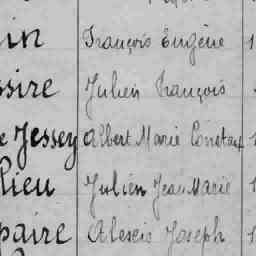 in François Eugène 1
ssire Julien François
e Jessey Albert Marie Constant 1
lieu Julien Jean Marie 1
paire Alexis Joseph 1